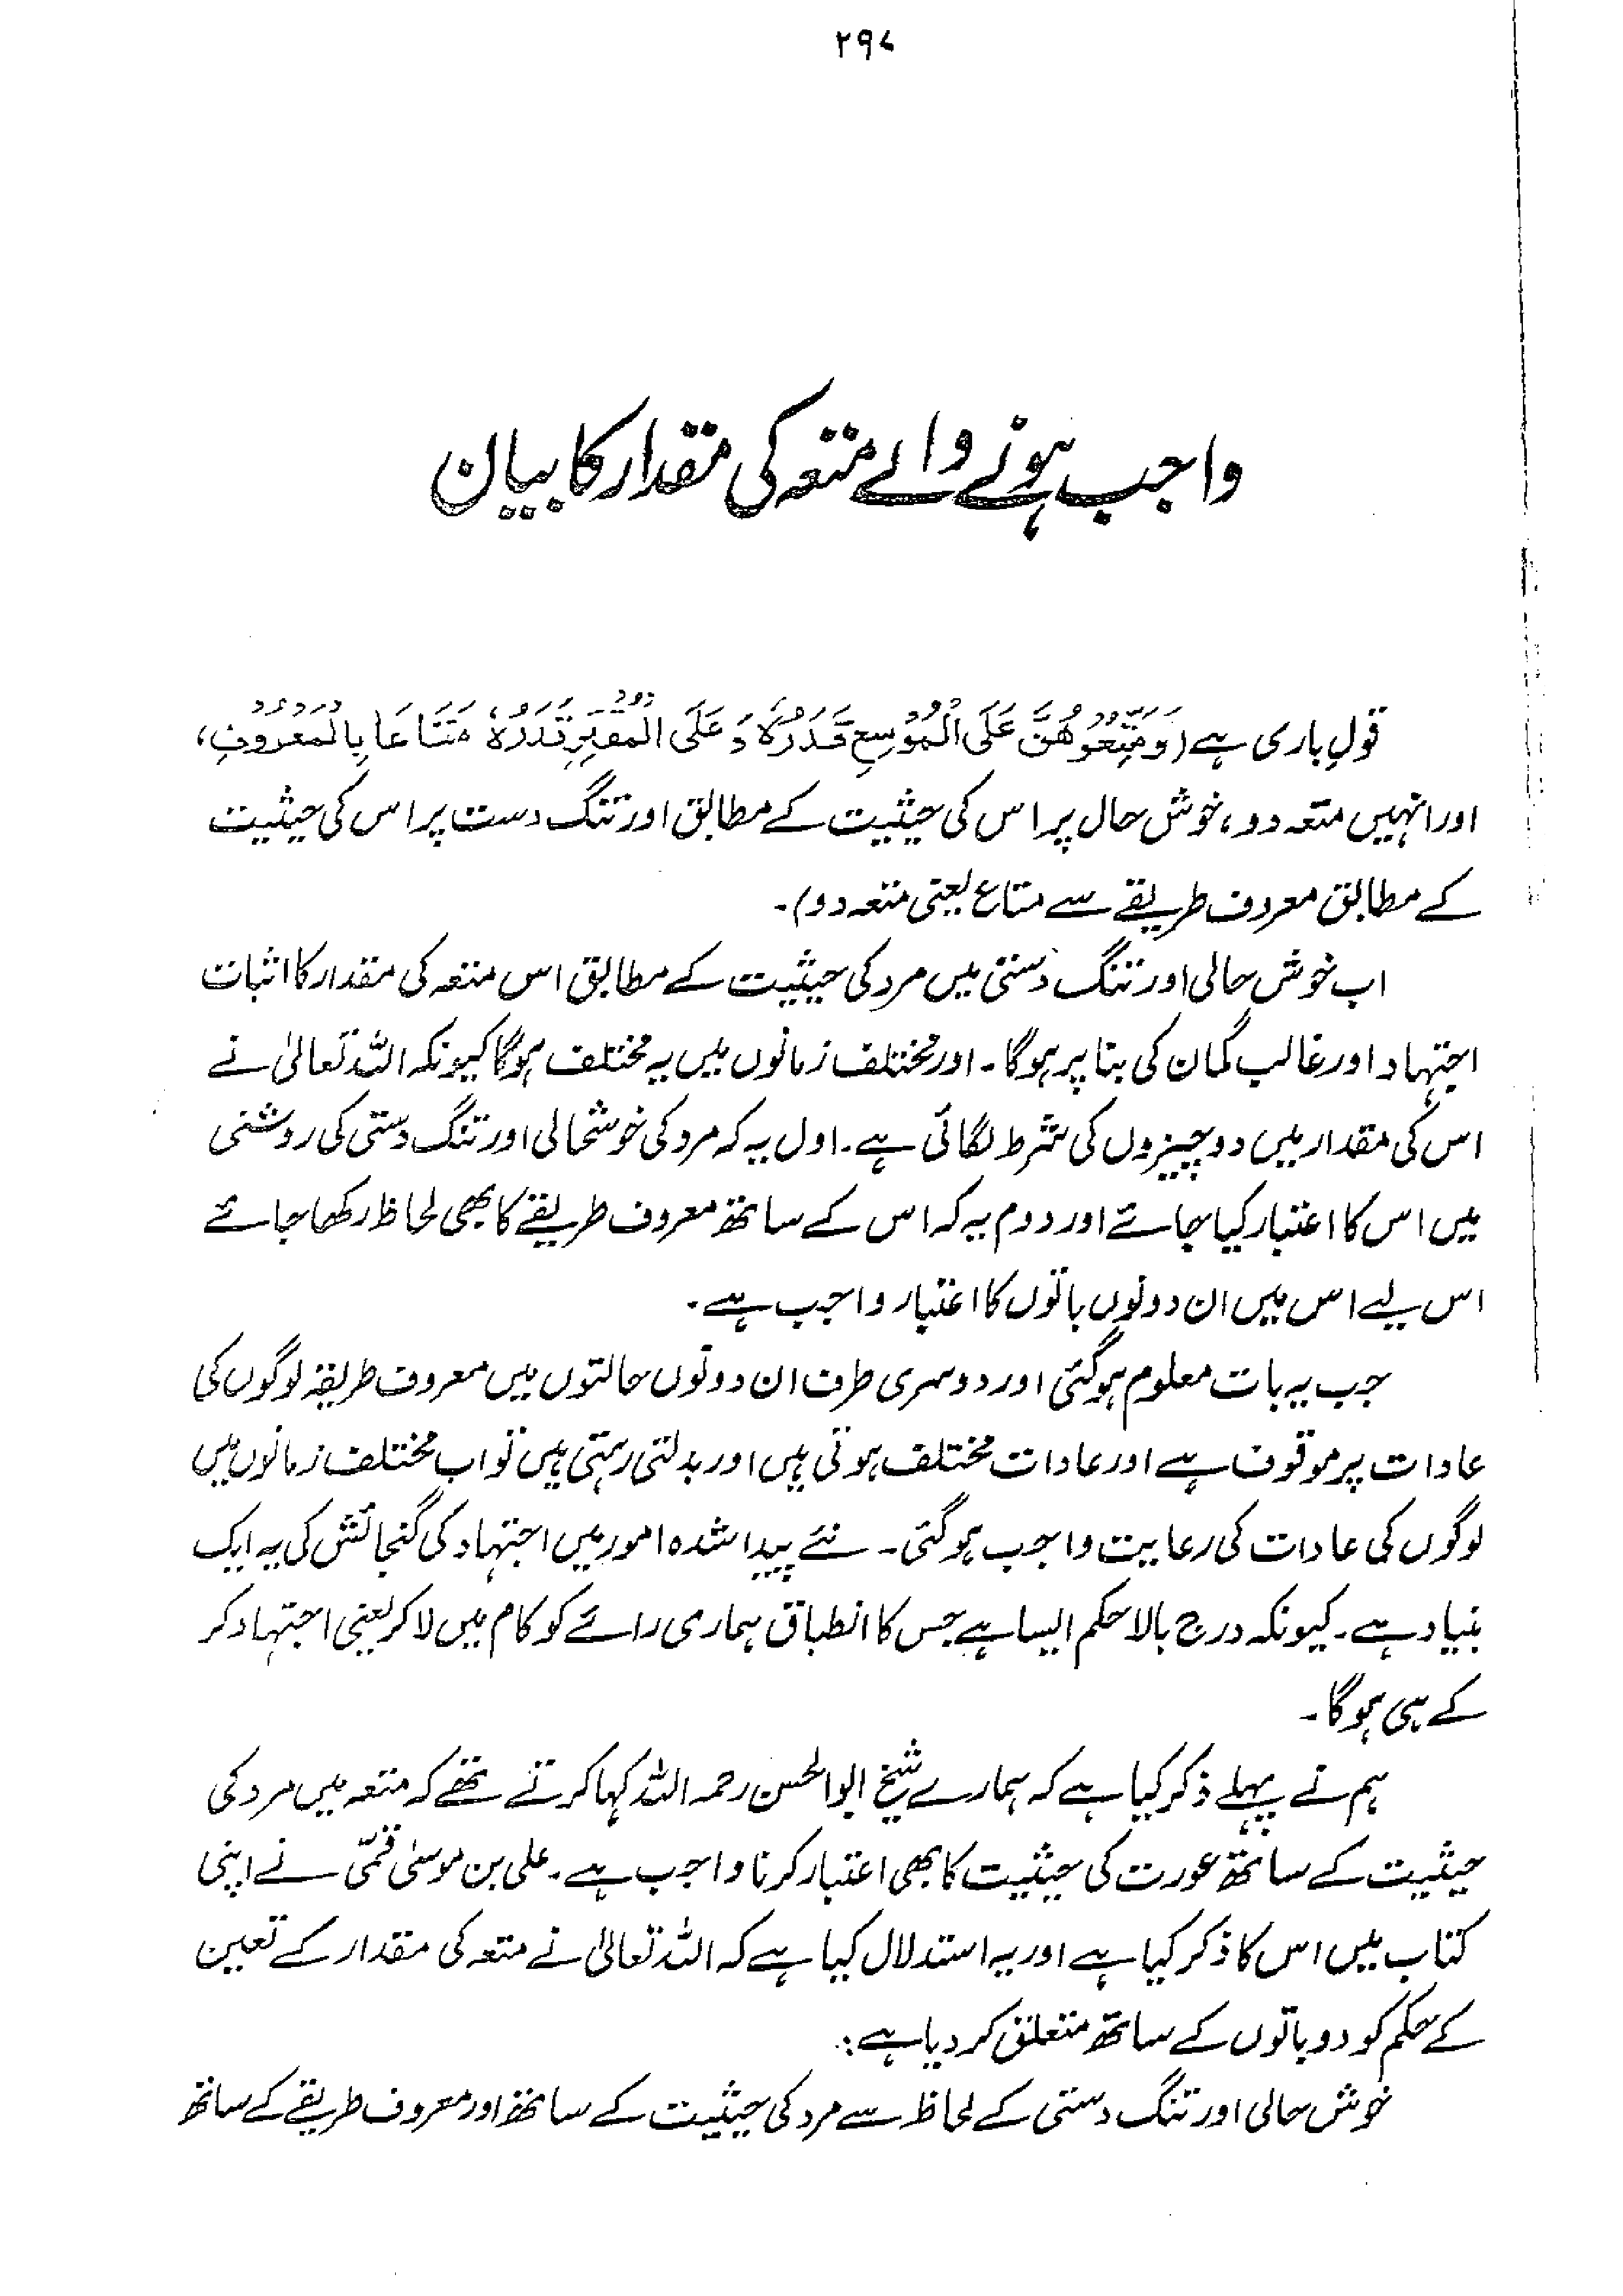 ۲۹۷
واجب ہونے والے متعہ کی مقدار کا بیان
قولِ باری ہے (وَمَتِّعُوْهُنَّ عَلَى الْمُوْسِعِ قَدَرُهٗ وَعَلَى الْمُقْتِرِ قَدَرُهٗ مَتَاعًا بِالْمَعْرُوْفِ،
اور انہیں متعہ دو، خوش حال پر اس کی حیثیت کے مطابق اور تنگ دست پر اس کی حیثیت
کے مطابق معروف طریقے سے متاع یعنی متعہ دو)۔
اب خوش حالی اور تنگ دستی میں مرد کی حیثیت کے مطابق اس متعہ کی مقدار کا اثبات
اجتہاد اور غالب گمان کی بنا پر ہوگا۔ اور مختلف زمانوں میں یہ مختلف ہوگا کیونکہ اللہ تعالیٰ نے
اس کی مقدار میں دو چیزوں کی شرط لگائی ہے۔ اول یہ کہ مرد کی خوشحالی اور تنگ دستی کی روشنی
میں اس کا اعتبار کیا جائے اور دوم یہ کہ اس کے ساتھ معروف طریقے کا بھی لحاظ رکھا جائے
اس لیے اس میں ان دونوں باتوں کا اعتبار واجب ہے۔
جب یہ بات معلوم ہوگئی اور دوسری طرف ان دونوں حالتوں میں معروف طریقہ لوگوں کی
عادات پر موقوف ہے اور عادات مختلف ہوتی ہیں اور بدلتی رہتی ہیں تو اب مختلف زمانوں میں
لوگوں کی عادات کی رعایت واجب ہوگئی۔ نئے پیدا شدہ امور میں اجتہاد کی گنجائش کی یہ ایک
بنیاد ہے۔ کیونکہ درج بالا حکم ایسا ہے جس کا انطباق ہماری رائے کو کام میں لا کر یعنی اجتہاد کر
کے ہی ہوگا۔
ہم نے پہلے ذکر کیا ہے کہ ہمارے شیخ ابوالحسن رحمہ اللہ کہا کرتے تھے کہ متعہ میں مرد کی
حیثیت کے ساتھ عورت کی حیثیت کا بھی اعتبار کرنا واجب ہے۔ علی بن موسیٰ قمّی نے اپنی
کتاب میں اس کا ذکر کیا ہے اور یہ استدلال کیا ہے کہ اللہ تعالیٰ نے متعہ کی مقدار کے تعین
کے حکم کو دو باتوں کے ساتھ متعلق کر دیا ہے:
خوش حالی اور تنگ دستی کے لحاظ سے مرد کی حیثیت کے ساتھ اور معروف طریقے کے ساتھ